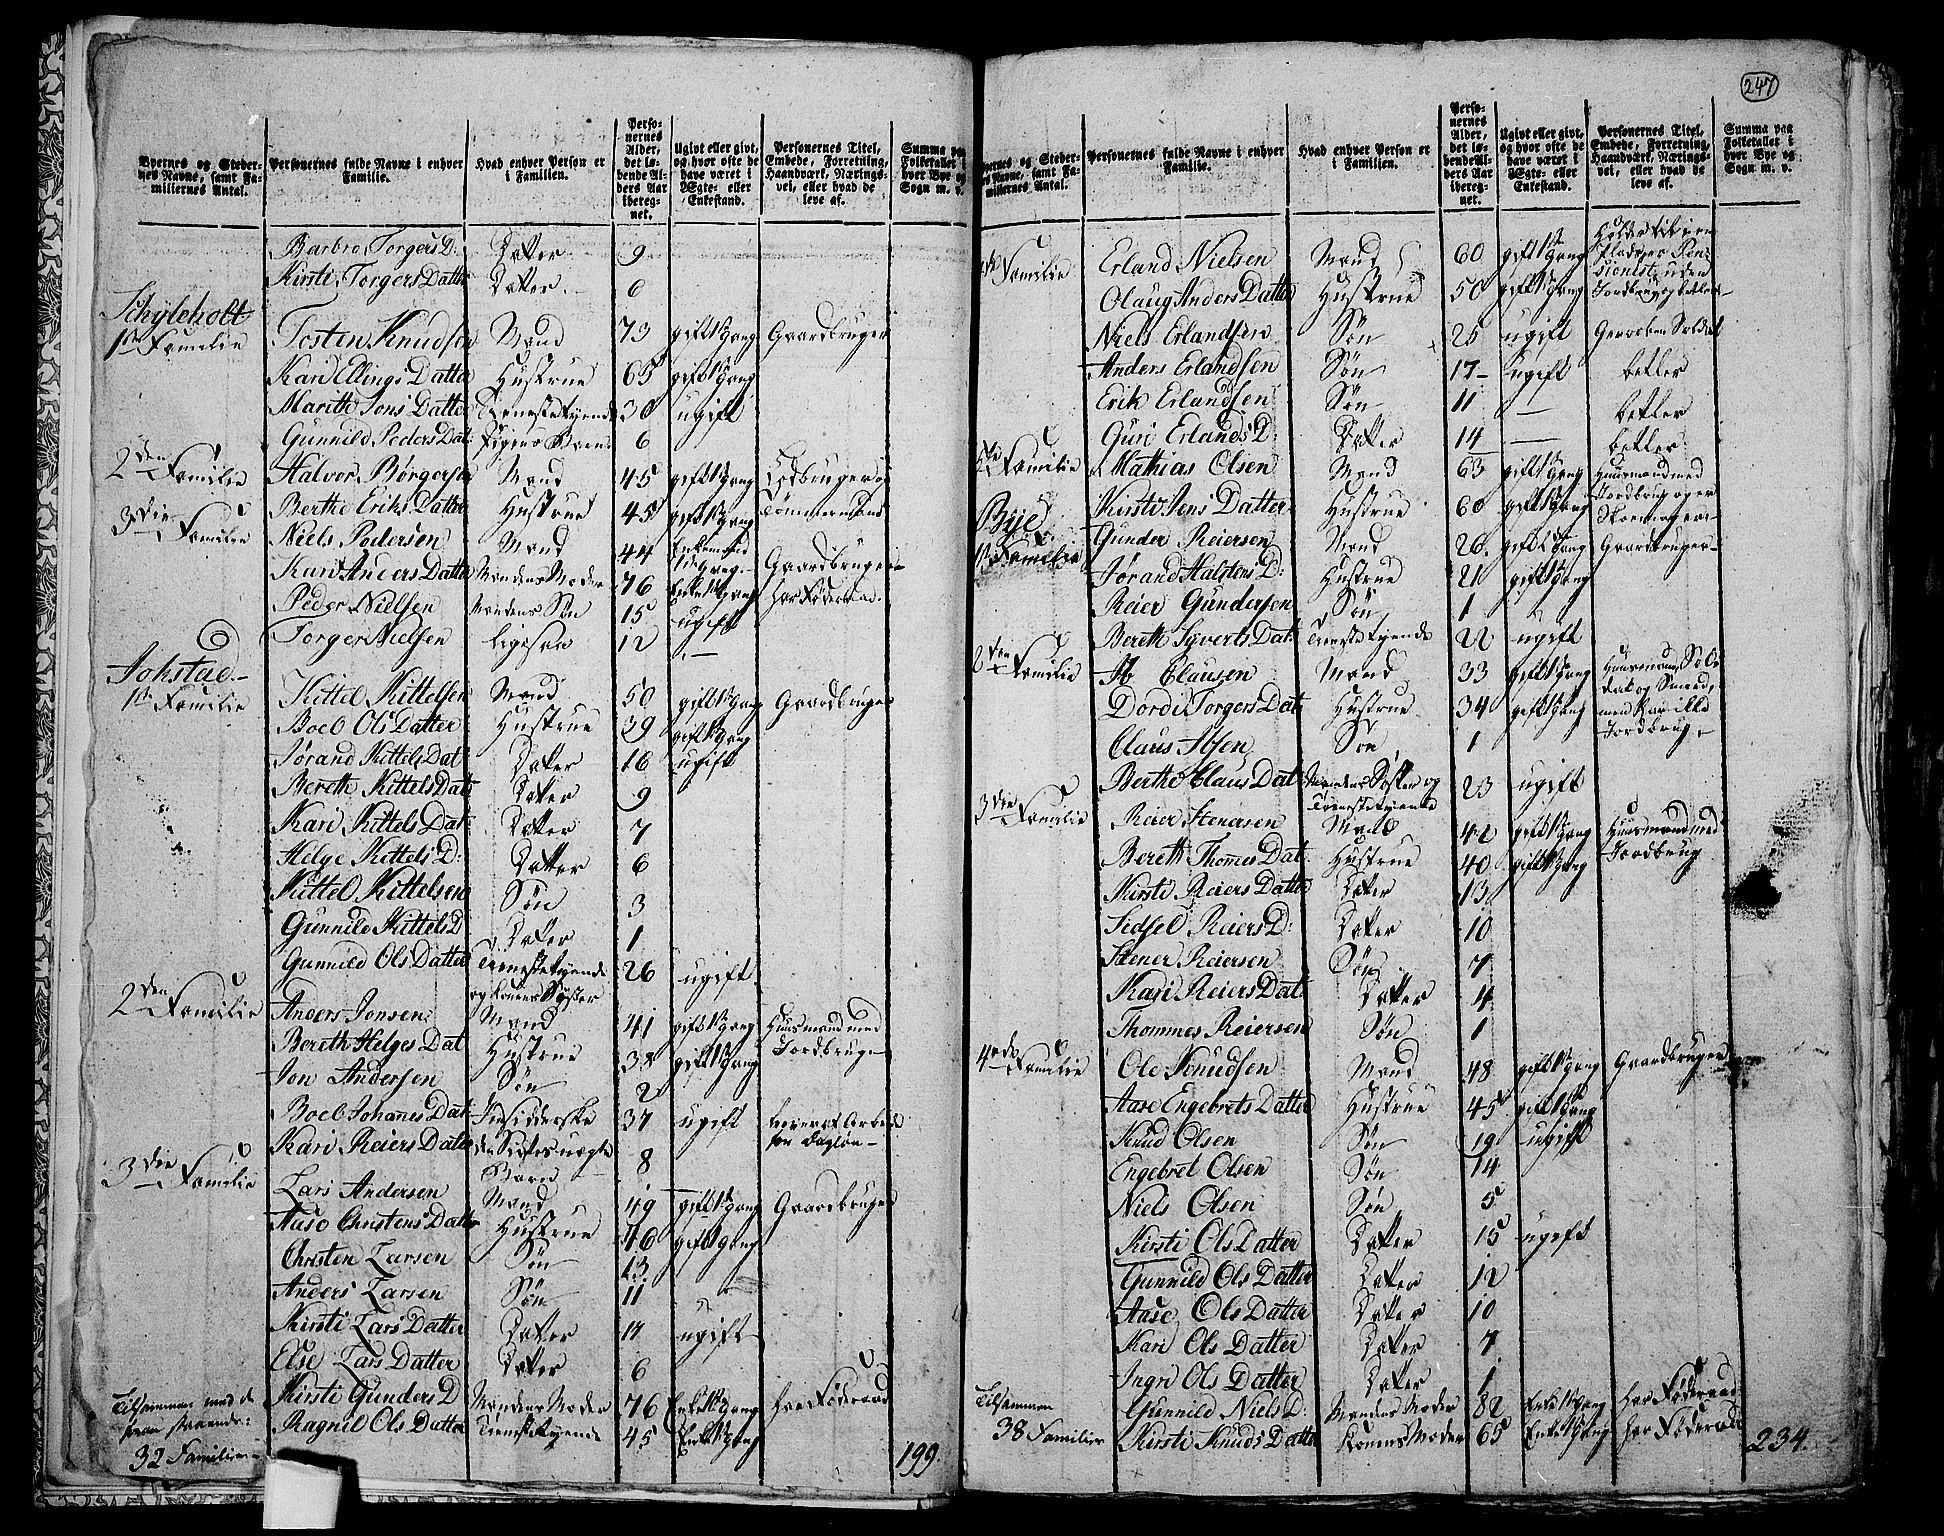 247
Byernes og Steder-nes Navne, samt Fa-miliernes Antal. | Personernes fulde Navne i enhver Familie. | Hvad enhver Person er i Familien. | Perso-nernes Alder, det lø-bende Al-ders Aar ibereg-net. | Ugivt eller givt, og hvor ofte de have været i Ægte- eller Enkestand. | Personernes Titel, Embede, Forretning, Haandværk, Nærings-vei, eller hvad de leve af. | Summa paa Folketallet i hver Bye og Sogn m. v.
Barbro Torgers D: Datter 9
Kirsti Torgers Datter Datter 6
Schyleholt
1ste Familie Tosten Knudsen Mand 73 gift 1 Gang Gaardbruger
Kari Ellings Datter Hustrue 65 gift 1 Gang
Marithe Jons Datter Tienestetyende 30 ugift
Gunnild Peders Dat: 6
2den Familie Halvor Børgersen Mand 45 gift 1 Gang
Berthe Eriks Datter Hustrue 45 gift 1 Gang
3die Familie Niels Pedersen Mand 44 Enkemand Gaardbruger
Kari Anders Datter Mandens Moder 76 har Føderaad
Peder Nielsen Mandens Søn 15 ugift
Torger Nielsen ligesaa 12
Jokstad
1ste Familie Kittel Kittelsen Mand 50 gift 1 Gang Gaardbruger
Boel Ols Datter Hustrue 39 gift 1 Gang
Jørand Kittels Dat Datter 16 ugift
Bereth Kittels Dat Datter 9
Kari Kittels Dat: Datter 7
Helge Kittels D: Datter 6
Kittel Kittelsen Søn 3
Gunnild Kittels D Datter 1
Gunnild Ols Datter Tienestetyende og Konens Syster 26 ugift
2den Familie Anders Jonsen Mand 41 gift 1 Gang Huusmand med Jordbrug
Bereth Helges Dat Hustrue 38 gift 1 Gang
Jon Andersen Søn 2
Boel Johanes Dat Indsidderske 37 ugift lever af Arbeid for Dagløn
Kari Reiers Datter Barn 8
3die Familie Lars Andersen Mand 49 gift 1 Gang Gaardbruger
Aase Christens Datter Hustrue 46 gift 1 Gang
Christen Larsen Søn 13
Anders Larsen Søn 11
Kirsti Lars Datter Datter 17 ugift
Else Lars Datter Datter 6
Kirsti Gunders D Mandens Moder 76 Enke 1 Gang har Føderaad
Ragnil Ols Datter Tienestetyende 45 Enke 1 Gang
Tilsammen med de
32 Familier 199.
Byernes og Steder-nes Navne, samt Fa-miliernes Antal. | Personernes fulde Navne i enhver Familie. | Hvad enhver Person er i Familien. | Perso-nernes Alder, det lø-bende Al-ders Aar ibereg-net. | Ugivt eller givt, og hvor ofte de have været i Ægte- eller Enkestand. | Personernes Titel, Embede, Forretning, Haandværk, Nærings-vei, eller hvad de leve af. | Summa paa Folketallet i hver Bye og Sogn m. v.
Familie Erland Nielsen Mand 60 gift 1 Gang
Olaug Anders Datter Hustrue 50 gift 1 Gang
Niels Erlandsen Søn 25 ugift Gevorben Soldat
Anders Erlandsen Søn 17 ugift betler
Erik Erlandsen Søn 11 — betler
Guri Erlands D: Datter 14 — betler
5te Familie Mathias Olsen Mand 63 gift 1 Gang Huusmand med
Kirsti Jens Datter Hustrue 60 gift 1 Gang Jordbrug og er Skoemager
Bye
1ste Familie Gunder Reiersen Mand 26 gift 1 Gang Gaardbruger
Jørand Halstens D: Hustrue 21 gift 1 Gang
Reier Gundersen Søn 1
Bereth Syverts Dat: Tienestetyende 22 ugift
2den Familie Ib Clausen Mand 33 gift 1 Gang Huusmand, Soldat og Smed,
Dordi Torgers Dat Hustrue 34 gift 1 Gang men har ille Jordbrug
Claus Ibsen Søn 1
Berthe Claus Dat Mandens Søster og Tienestetyende 23 ugift
3die Familie Reier Stenersen Mand 42 gift 1 Gang Huusmand med
Bereth Thomes Dat Hustrue 40 gift 1 Gang Jordbrug
Kirsti Reiers Datter Datter 13
Sidsel Reiers D: Datter 10
Stener Reiersen Søn 7
Kari Reiers Dat: Datter 4
Thommes Reiersen Søn 1
4de Familie Ole Knudsen Mand 48 gift 1 Gang Gaardbruger
Aase Engebrets Datter Hustrue 45 gift 1 Gang
Knud Olsen Søn 19 ugift
Engebret Olsen Søn 14
Niels Olsen Søn 5
Kirsti Ols Datter Datter 15 ugift
Gunnild Ols Datter Datter 12
Aase Ols Datter Datter 10
Kari Ols Datter Datter 7
Ingri Ols Datter Datter 1
Gunnild Niels D: Mandens Moder 82 Enke 1 Gang har Føderaad
Kirsti Knuds Datter Konens Moder 65 Enke 1 Gang har Føderaad
Tilsammen
38 Familier 234.